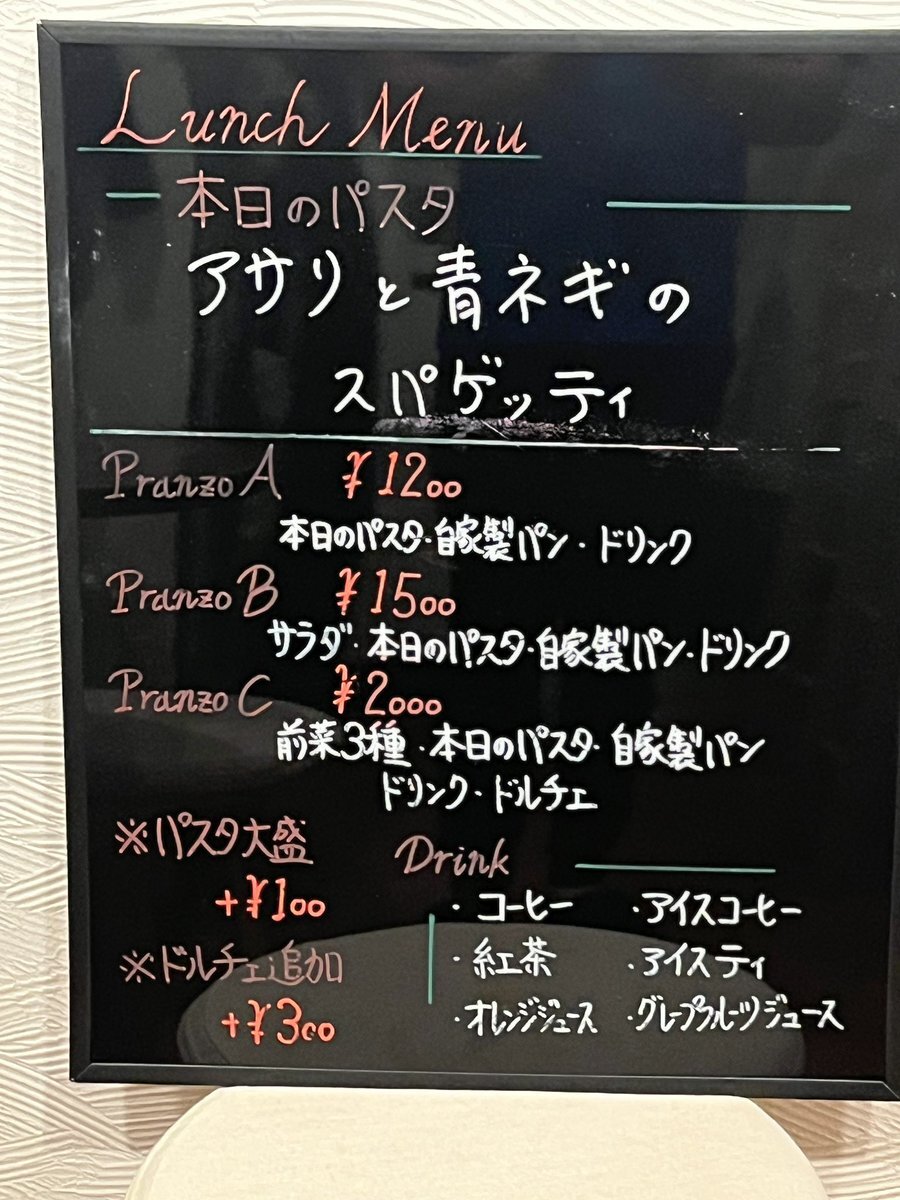 Lunch Menu
本日のパスタ
アサリと青ネギの
スパゲッティ
Pranzo A ¥1200
本日のパスタ・自家製パン・ドリンク
Pranzo B ¥1500
サラダ・本日のパスタ・自家製パン・ドリンク
Pranzo C ¥2000
前菜3種・本日のパスタ・自家製パン
ドリンク・ドルチェ
※パスタ大盛
+¥100
※ドルチェ追加
+¥300
Drink
・コーヒー ・アイスコーヒー
・紅茶 ・アイスティ
・オレンジジュース ・グレープフルーツジュース